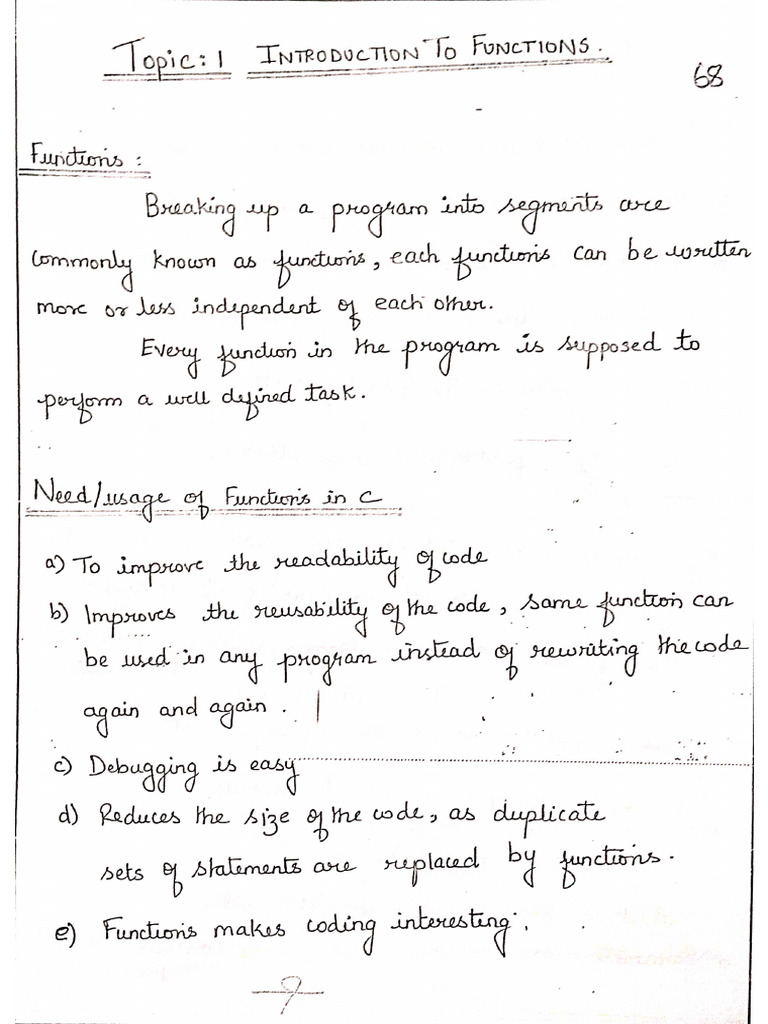 Topic: 1 INTRODUCTION TO FUNCTIONS.
68
Functions :
Breaking up a program into segments are
commonly known as functions, each functions can be written
more or less independent of each other.
Every function in the program is supposed to
perform a well defined task.
Need/usage of Functions in C
a) To improve the readability of code
b) Improves the reusability of the code, same function can
be used in any program instead of rewriting the code
again and again.
c) Debugging is easy
d) Reduces the size of the code, as duplicate
sets of statements are replaced by functions.
e) Functions makes coding interesting.